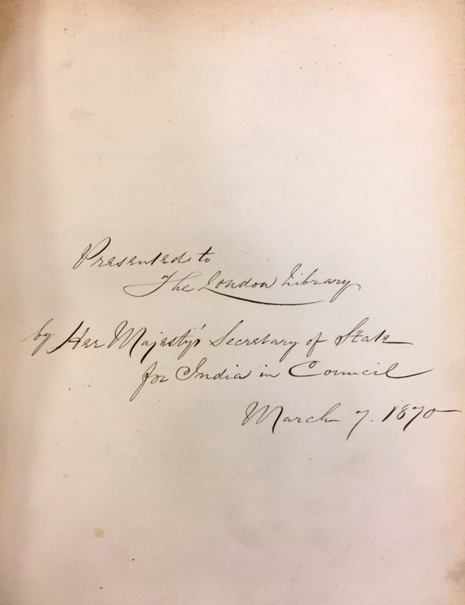 Presented to
The London Library
by Her Majesty's Secretary of State
for India in Council
March 7. 1870